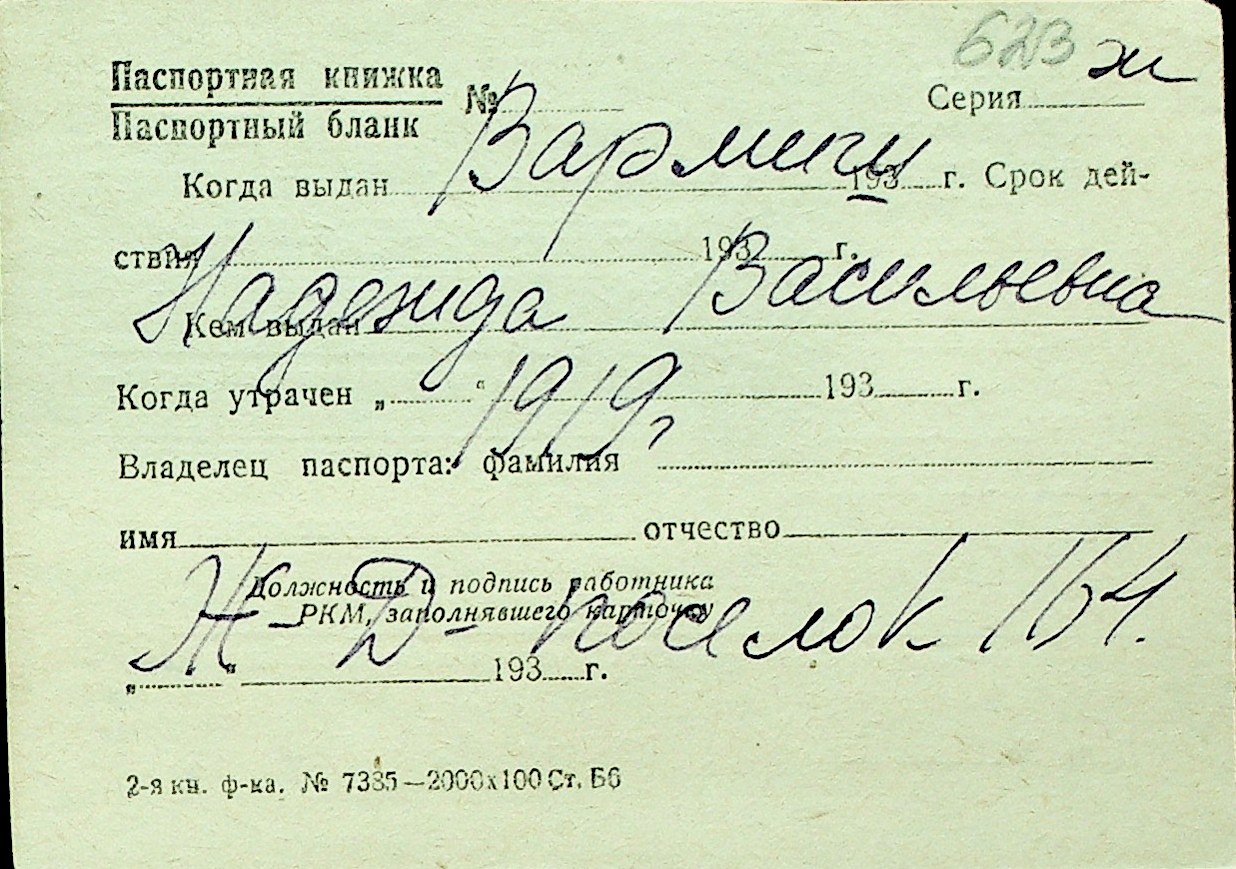 623 ж
Паспортная книжка
Паспортный бланк № Серия
Когда выдан 193 г. Срок дей-
ствия 193 г.
Надежда Васильевна
Кем выдан
Когда утрачен „ “ 193 г.
1919 г
Владелец паспорта: фамилия
имя отчество
Должность и подпись работника
РКМ, заполнявшего карточку
Ж-Д- поселок 164.
„ “ 193 г.
2-я кн. ф-ка. № 7385—2000х100 Ст. Б6